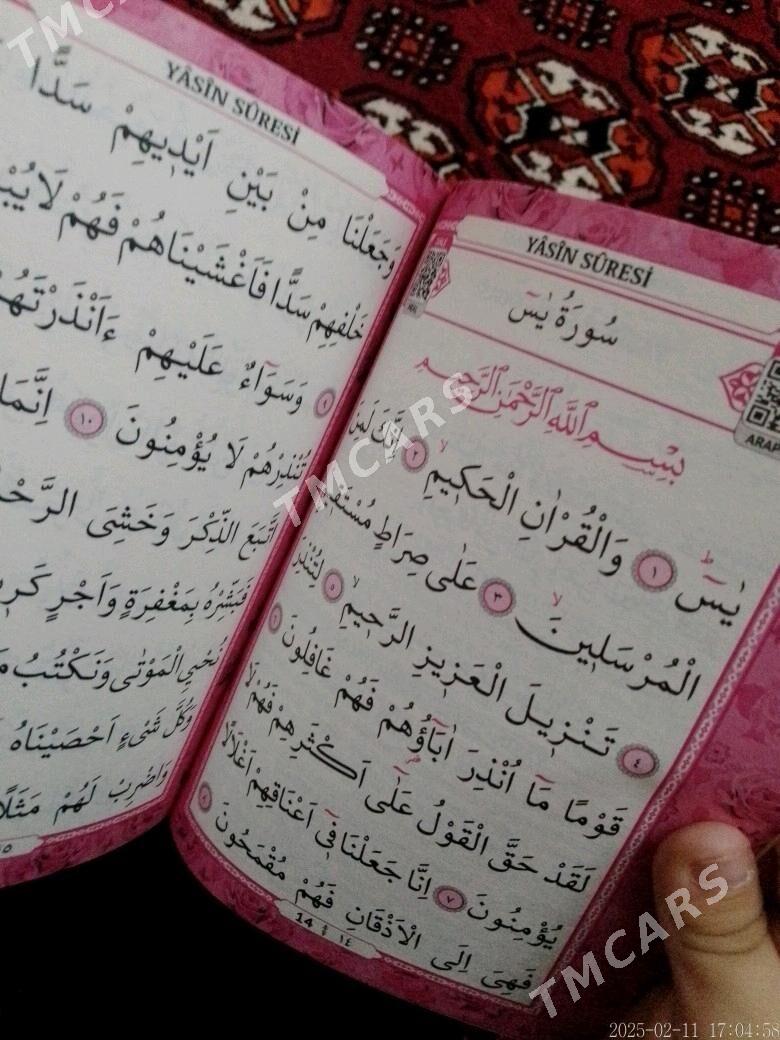 YÂSÎN SÛRESİ
سُورَةُ يٰسٓ
بِسْمِ اللهِ الرَّحْمٰنِ الرَّحِيمِ
ARAP
يٰسٓ ﴿١﴾ وَالْقُرْاٰنِ الْحَكِيمِ ﴿٢﴾ اِنَّكَ لَمِنَ
الْمُرْسَلِينَ ﴿٣﴾ عَلٰى صِرَاطٍ
﴿٤﴾ تَنْزِيلَ الْعَزِيزِ الرَّحِيمِ ﴿٥﴾ لِتُنْذِرَ
قَوْمًا مَٓا اُنْذِرَ اٰبَٓاؤُ۬هُمْ فَهُمْ غَافِلُونَ ﴿٦﴾
لَقَدْ حَقَّ الْقَوْلُ عَلٰٓى اَكْثَرِهِمْ فَهُمْ لَا
يُؤْمِنُونَ ﴿٧﴾ اِنَّا جَعَلْنَا ف۪ٓي اَعْنَاقِهِمْ اَغْلَالًا
فَهِيَ اِلَى الْاَذْقَانِ فَهُمْ مُقْمَحُونَ ﴿٨﴾
14 ١٤
YÂSÎN SÛRESİ
وَجَعَلْنَا مِنْ بَيْنِ اَيْد۪يهِمْ سَدًّا
خَلْفِهِمْ سَدًّا فَاَغْشَيْنَاهُمْ فَهُمْ لَا
﴿٩﴾ وَسَوَٓاءٌ عَلَيْهِمْ ءَاَنْذَرْتَهُمْ
تُنْذِرْهُمْ لَا يُؤْمِنُونَ ﴿١٠﴾ اِنَّمَا
اتَّبَعَ الذِّكْرَ وَخَشِيَ
فَبَشِّرْهُ بِمَغْفِرَةٍ وَاَجْرٍ
نُحْيِ الْمَوْتٰى وَنَكْتُبُ
وَكُلَّ شَيْءٍ اَحْصَيْنَاهُ
وَاضْرِبْ لَهُمْ مَثَلًا
TMCARS
TMCARS
TMCARS
TMCARS
2025-02-11 17:04:58